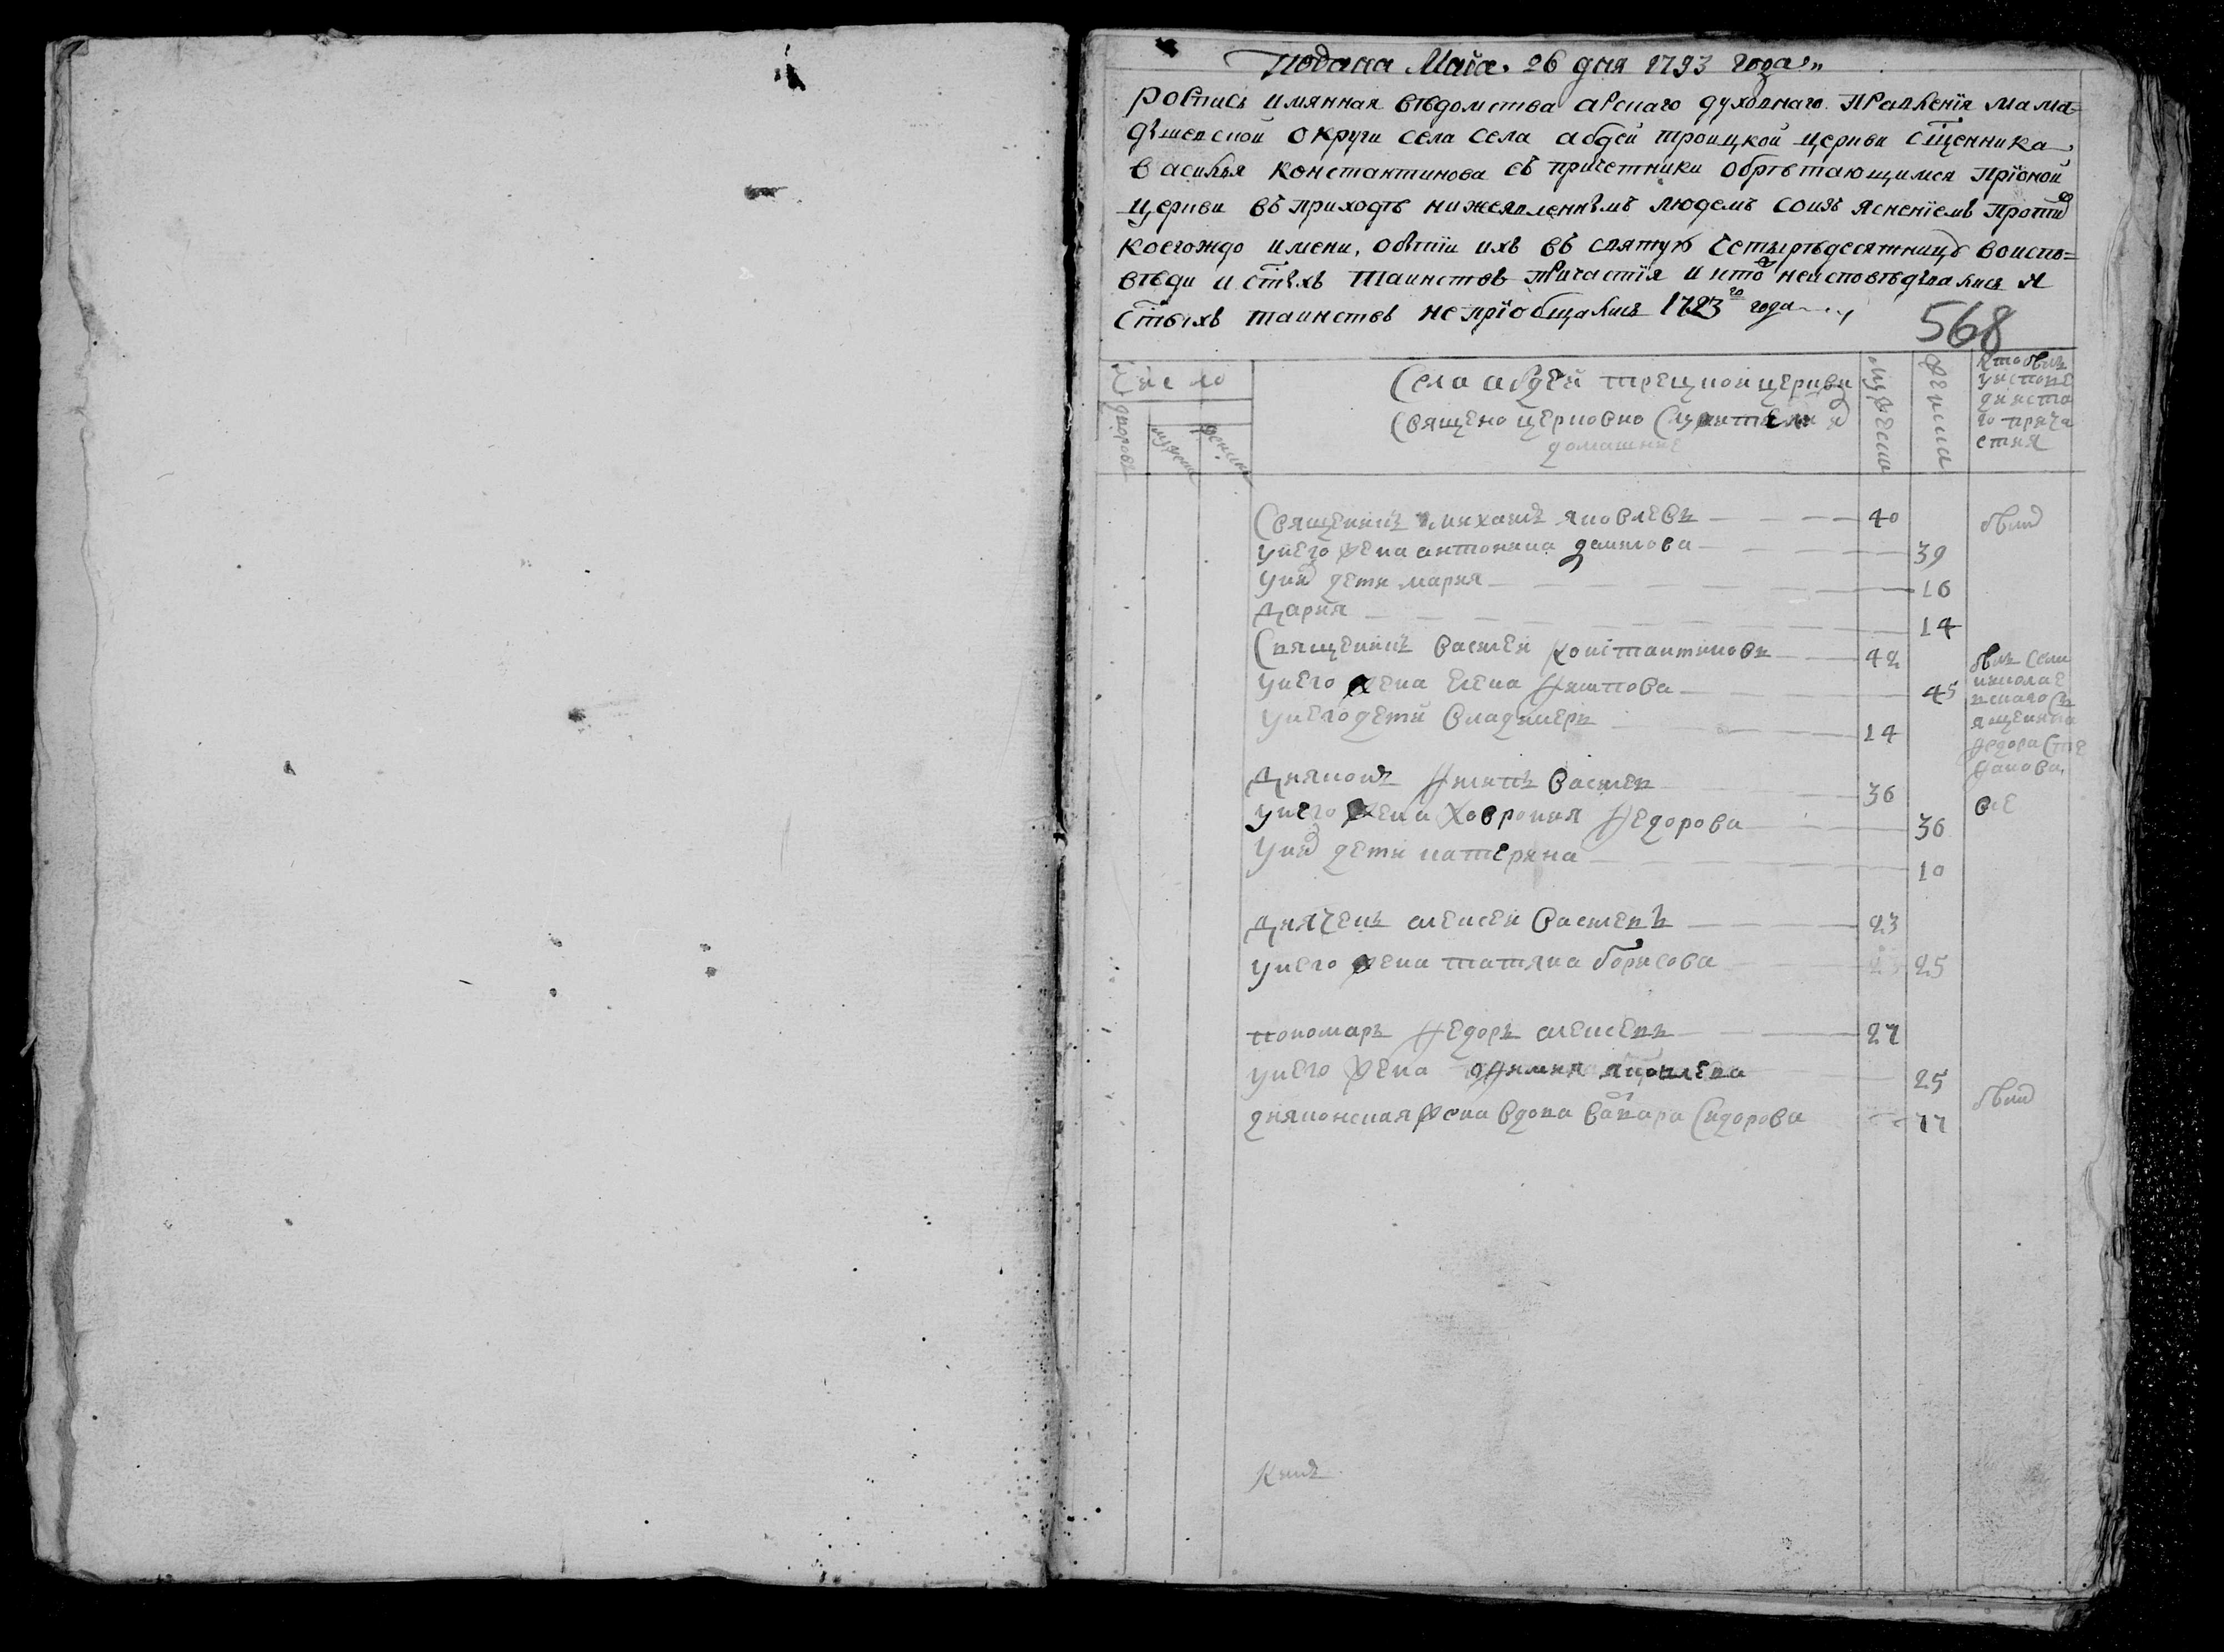 Подана Маiя 26 дня 1793 года
роспись имянная вѣдомства арскаго духовнаго правленїя мама-
дышевской округи села села абдей троицкой церкви сщенника
василья константинова съ причетники обрѣтающимся прионой
церкви въ приходѣ нижеявленнымъ людемъ соизъяснениемъ против
коегождо имени, бытïи ихъ въ святую четыредесятницу воиспо=
вѣди и стыхъ таинствъ причастïя и кто неисповѣдывались и
стыхъ таинствъ не прïобщались 1793 го года
568
Число
дворовъ
мужеска
женска
Села абдей троецкой церкви
священо церковно служители и
домашние
мужеска
женска
Кто былъ
уиспове
ди и ста
го прича
стия
Священикъ михаилъ яковлевъ 40 были
унего жена антонина данилова 39
уних дети мария 16
дария 14
Священикъ василеи констаитиновъ 42
былъ села
николае
вскаго св
ященика
федора сте
фанова
унего жена елена филипова 45
унего дети владимеръ 14
дияконъ филипъ василевъ 36
все
унего жена ховрония федорова 36
уних дети катерина 10
диячекъ алексеи василевъ 23
унего жена татяна борисова 25
пономарь федоръ алексеевъ 27
унего жена яковлева 25
были
дияконская жена вдова варвара сидорова 77